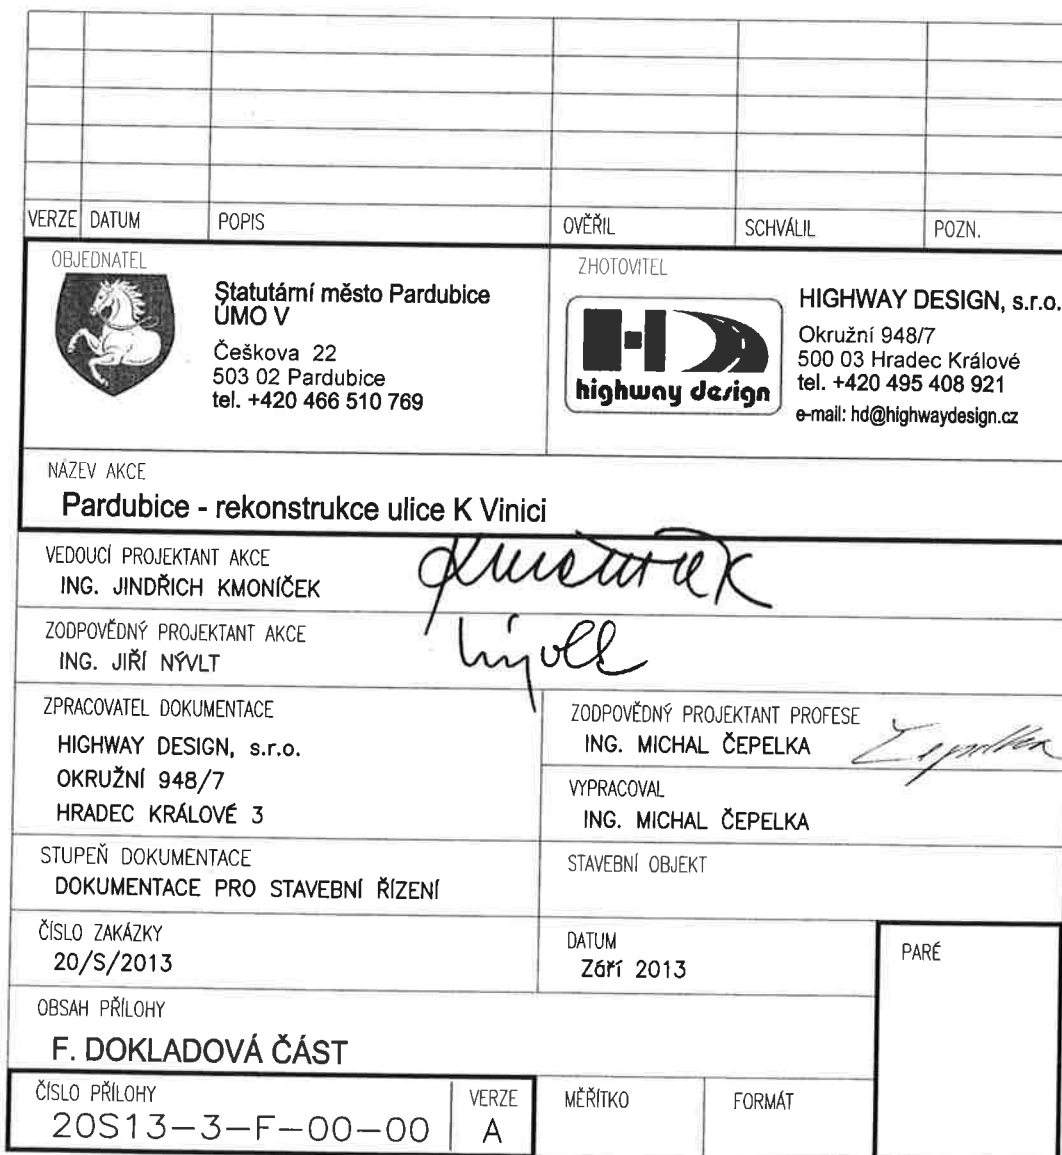 VERZE DATUM POPIS OVĚŘIL SCHVÁLIL POZN.
OBJEDNATEL
Statutární město Pardubice
ÚMO V
Češkova 22
503 02 Pardubice
tel. +420 466 510 769
ZHOTOVITEL
highway design
HIGHWAY DESIGN, s.r.o.
Okružní 948/7
500 03 Hradec Králové
tel. +420 495 408 921
e-mail: hd@highwaydesign.cz
NÁZEV AKCE
Pardubice - rekonstrukce ulice K Vinici
VEDOUCÍ PROJEKTANT AKCE
ING. JINDŘICH KMONÍČEK
ZODPOVĚDNÝ PROJEKTANT AKCE
ING. JIŘÍ NÝVLT
ZPRACOVATEL DOKUMENTACE
HIGHWAY DESIGN, s.r.o.
OKRUŽNÍ 948/7
HRADEC KRÁLOVÉ 3
ZODPOVĚDNÝ PROJEKTANT PROFESE
ING. MICHAL ČEPELKA
VYPRACOVAL
ING. MICHAL ČEPELKA
STUPEŇ DOKUMENTACE
DOKUMENTACE PRO STAVEBNÍ ŘÍZENÍ
STAVEBNÍ OBJEKT
ČÍSLO ZAKÁZKY
20/S/2013
DATUM
Září 2013
PARÉ
OBSAH PŘÍLOHY
F. DOKLADOVÁ ČÁST
ČÍSLO PŘÍLOHY
20S13-3-F-00-00
VERZE
A
MĚŘÍTKO
FORMÁT